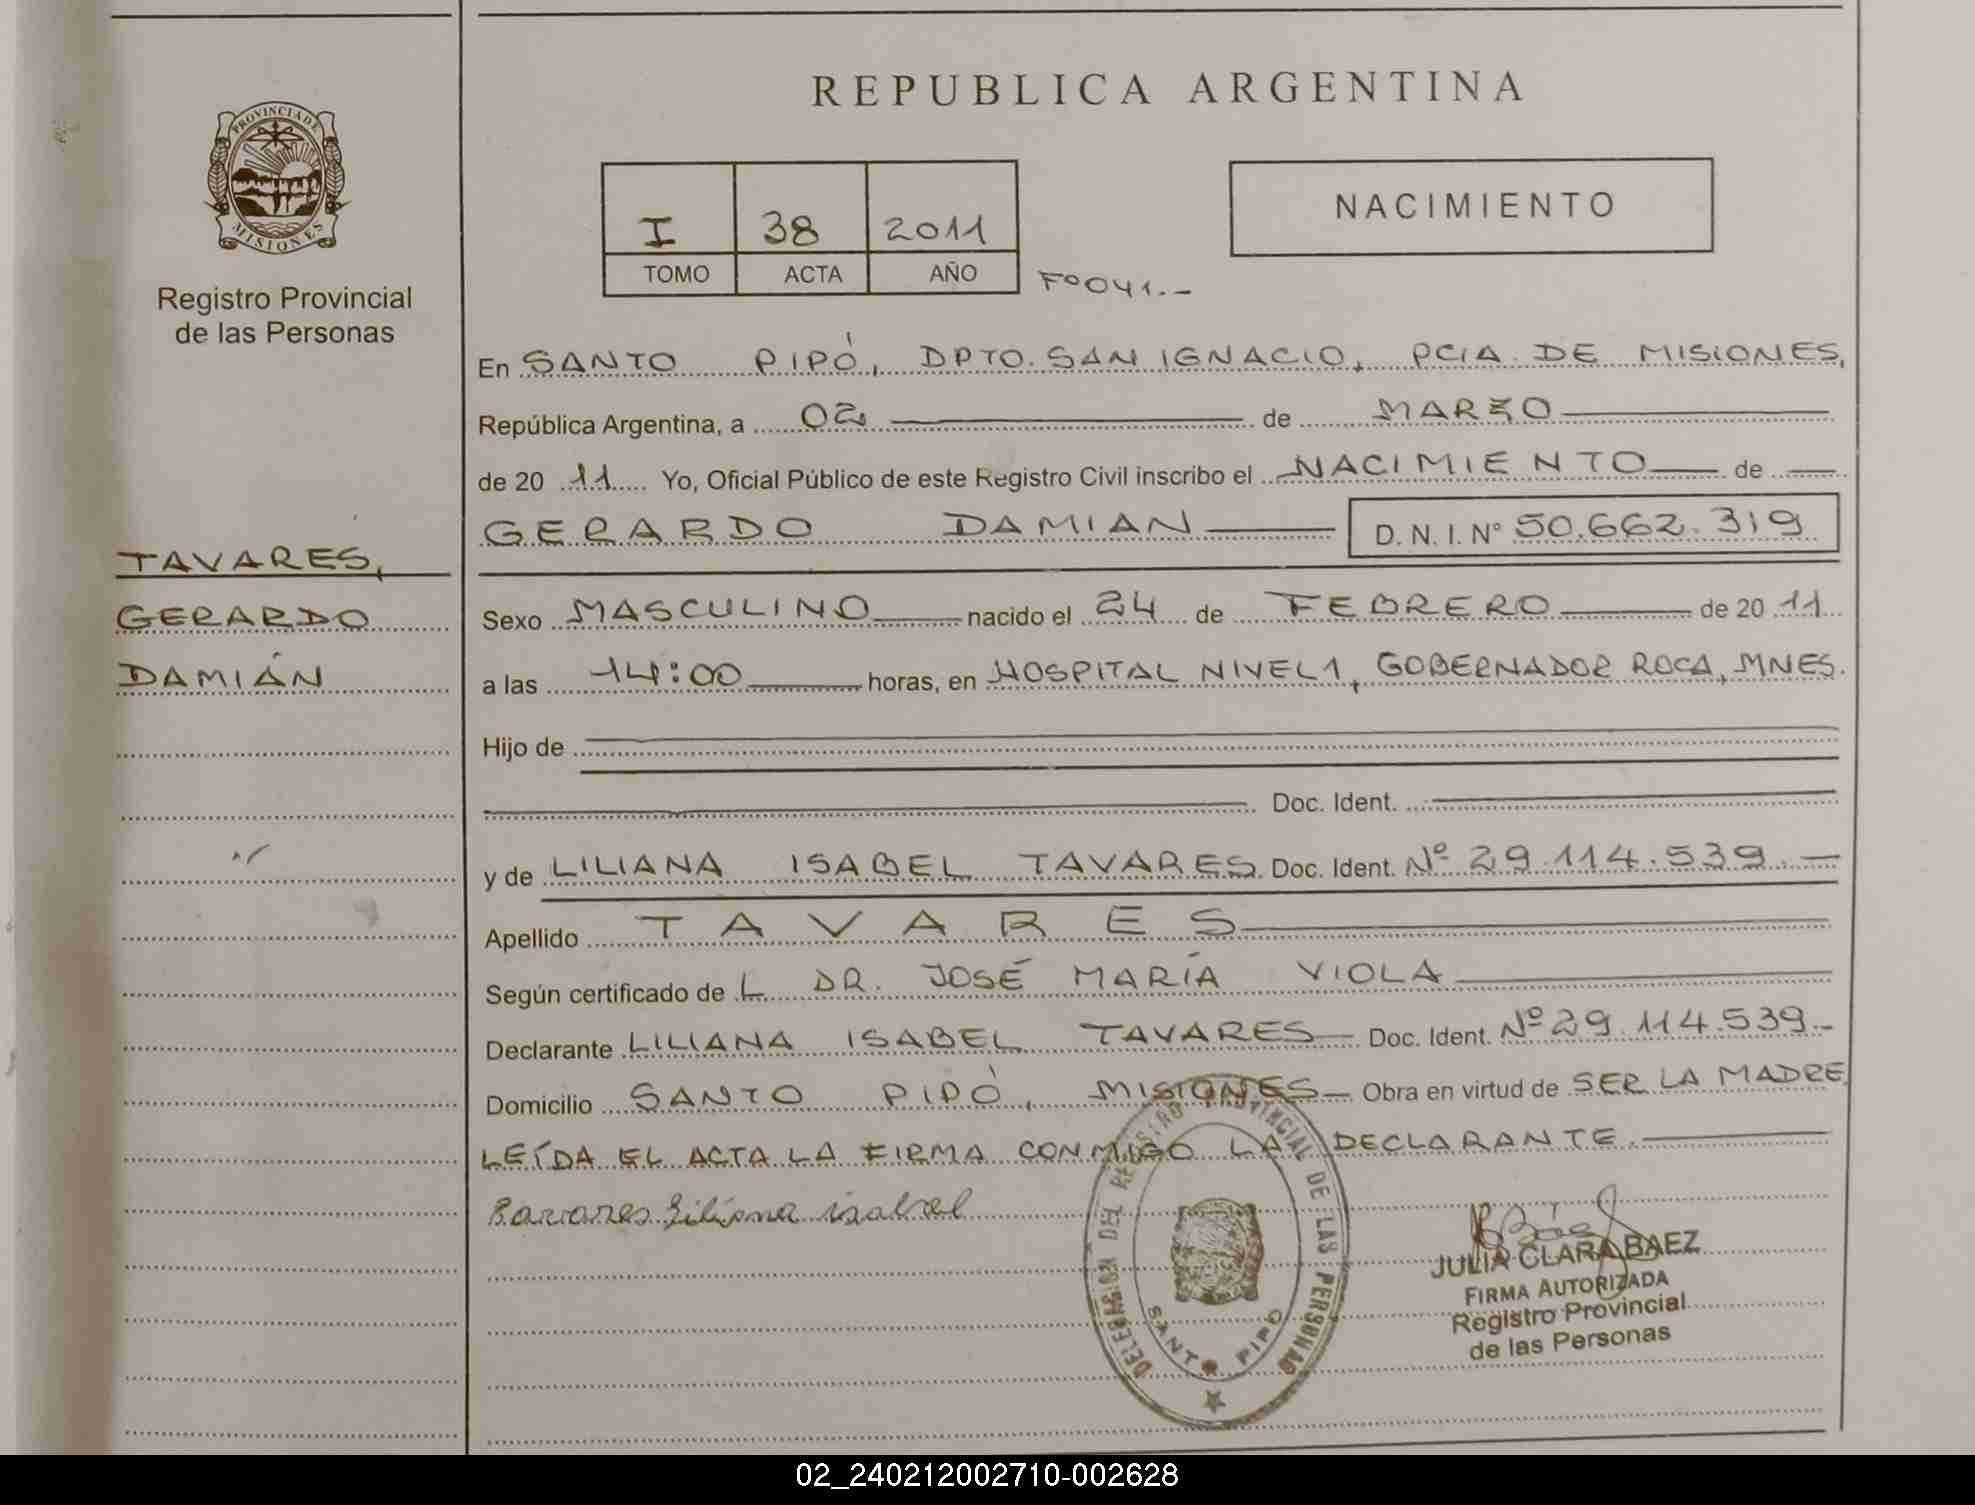 REPUBLICA ARGENTINA
PROVINCIA DE
MISIONES
Registro Provincial
de las Personas
I 38 2011
TOMO ACTA AÑO
Fº041.-
NACIMIENTO
En SANTO PIPÓ, DPTO. SAN IGNACIO, PCIA. DE MISIONES,
República Argentina, a 02 de MARZO
de 20 11 Yo, Oficial Público de este Registro Civil inscribo el NACIMIENTO de
GERARDO DAMIAN D. N. I. Nº 50.662.319
TAVARES,
GERARDO
DAMIÁN
Sexo MASCULINO nacido el 24 de FEBRERO de 20 11
a las 14:00 horas, en HOSPITAL NIVEL 1, GOBERNADOR ROCA, MNES.
Hijo de
Doc. Ident.
y de LILIANA ISABEL TAVARES Doc. Ident. Nº 29.114.539.-
Apellido TAVARES
Según certificado de L DR. JOSÉ MARÍA VIOLA
Declarante LILIANA ISABEL TAVARES Doc. Ident. Nº 29.114.539.-
Domicilio SANTO PIPÓ, MISIONES Obra en virtud de SER LA MADRE.
LEÍDA EL ACTA LA FIRMA CONMIGO LA DECLARANTE.
Tavares Liliana isabel
DELEGACION DEL REGISTRO PROVINCIAL DE LAS PERSONAS
SANTO PIPO
JULIA CLARA BAEZ
FIRMA AUTORIZADA
Registro Provincial
de las Personas
02_240212002710-002628